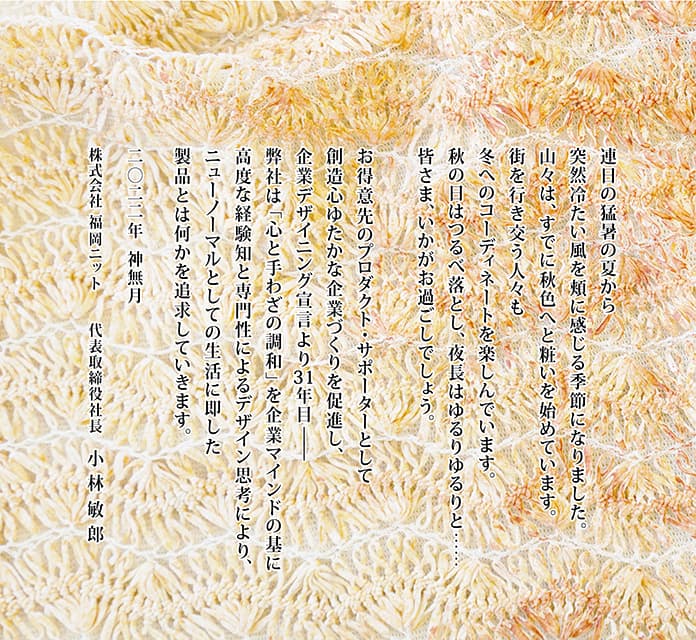 連日の猛暑の夏から
突然冷たい風を頬に感じる季節になりました。
山々は、すでに秋色へと粧いを始めています。
街を行き交う人々も
冬へのコーディネートを楽しんでいます。
秋の日はつるべ落とし、夜長はゆるりゆるりと……
皆さま、いかがお過ごしでしょう。
お得意先のプロダクト・サポーターとして
創造心ゆたかな企業づくりを促進し、
企業デザイニング宣言より31年目――
弊社は「心と手わざの調和」を企業マインドの基に
高度な経験知と専門性によるデザイン思考により、
ニューノーマルとしての生活に即した
製品とは何かを追求していきます。
二〇二二年 神無月
株式会社 福岡ニット 代表取締役社長 小林 敏郎